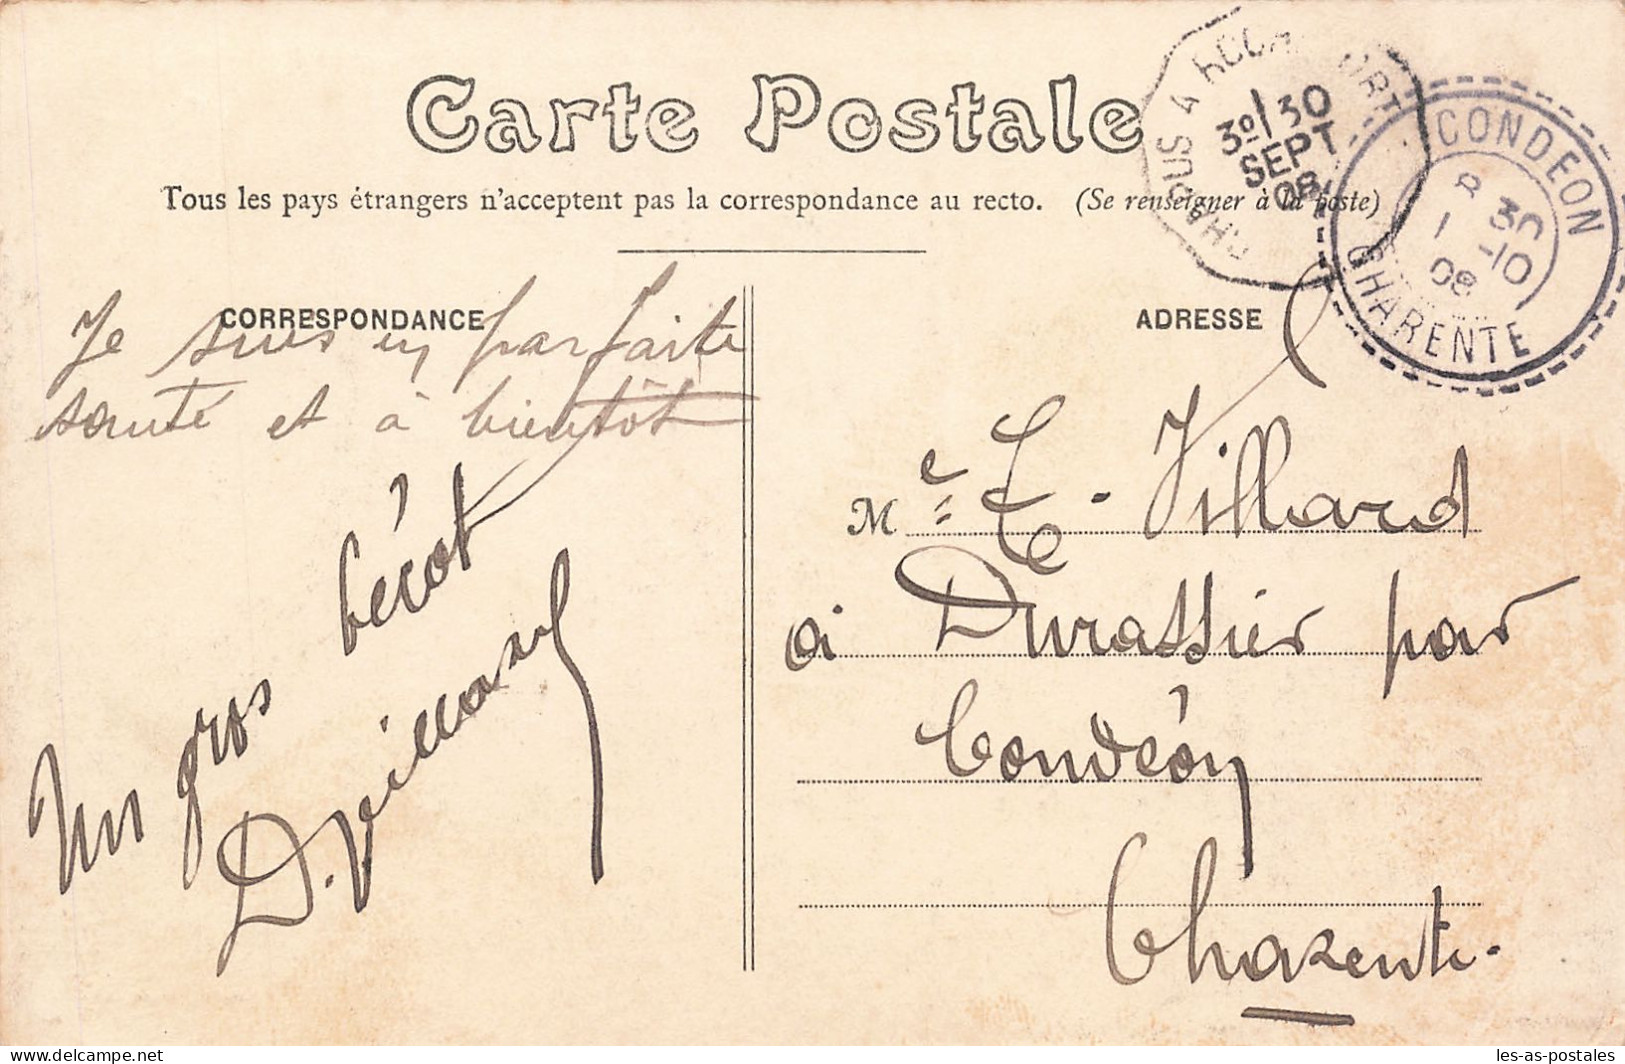 Carte Postale
Tous les pays étrangers n'acceptent pas la correspondance au recto. (Se renseigner à la poste)
3º/30
SEPT
08
CONDEON
8 30
1 -10
08
CHARENTE
CORRESPONDANCE
Je suis en parfaite
santé et à bientôt
Un gros bécot
D. Villard
ADRESSE
Me E. Villard
à Durassier par
Condéon
Charente
les-as-postales
delcampe.net